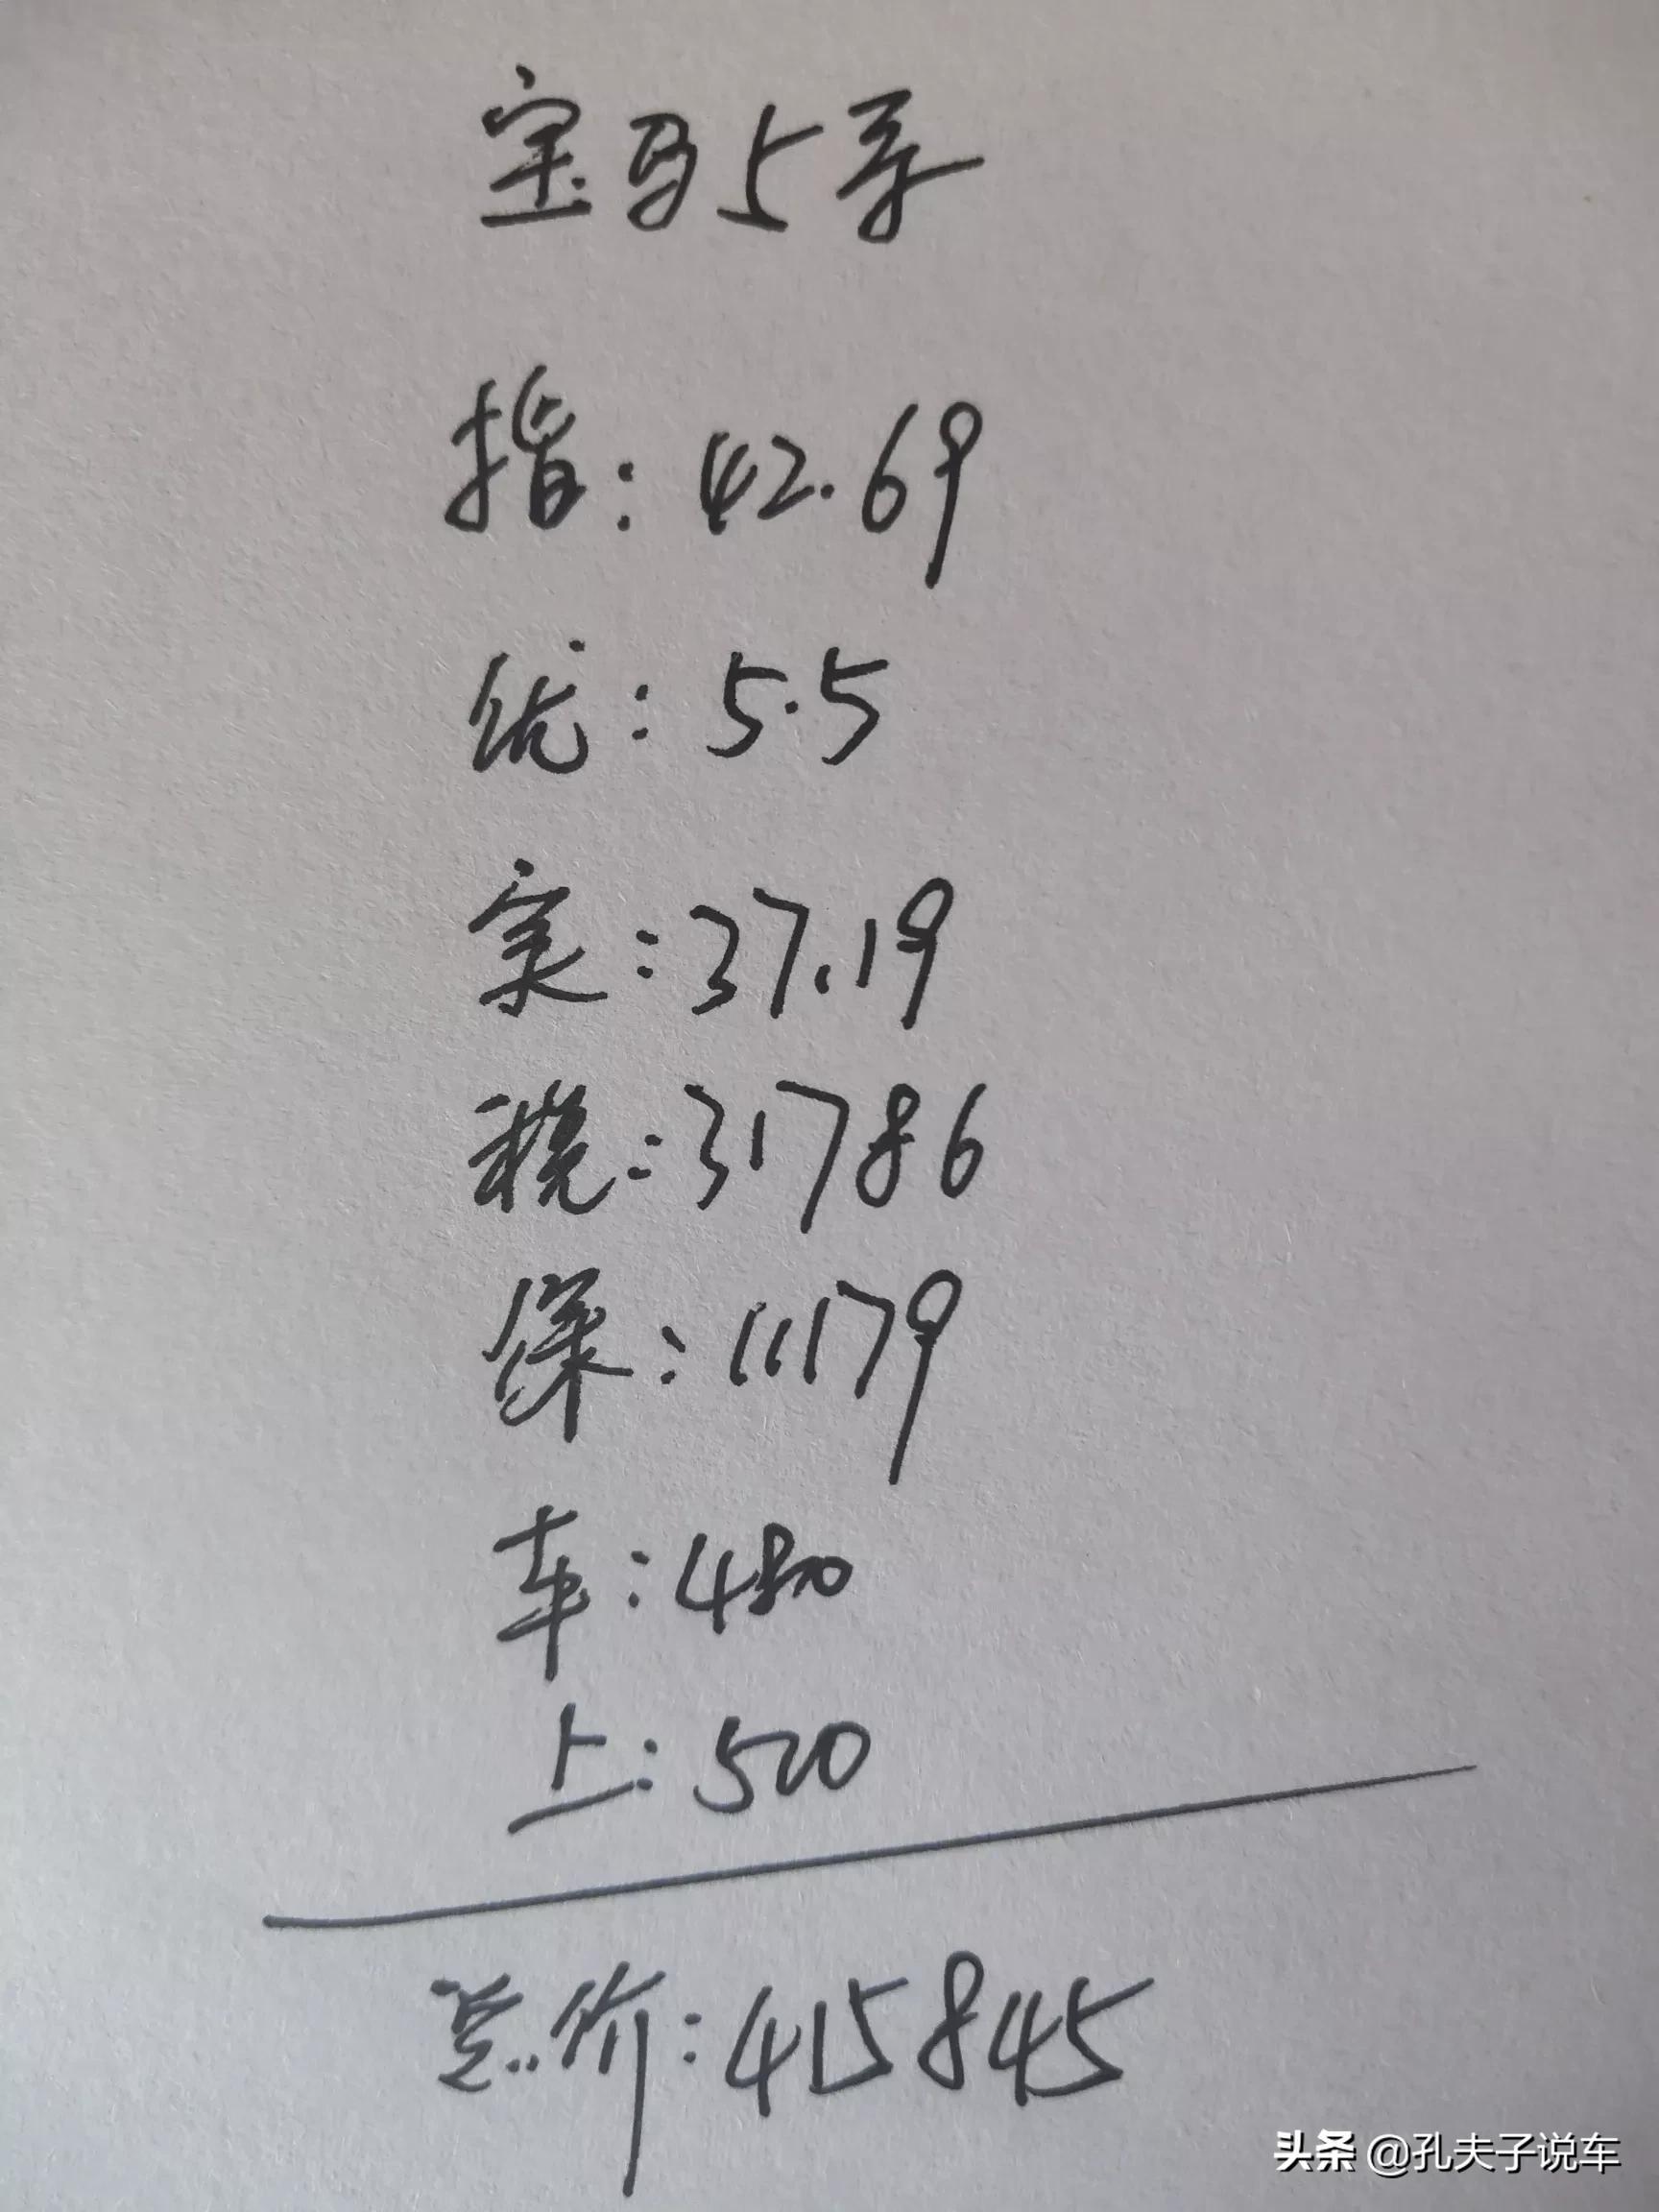 宝马5系
指:42.69
优:5.5
实:37.19
税:31786
保:11179
车:480
上:500
总价:415845
头条 @孔夫子说车